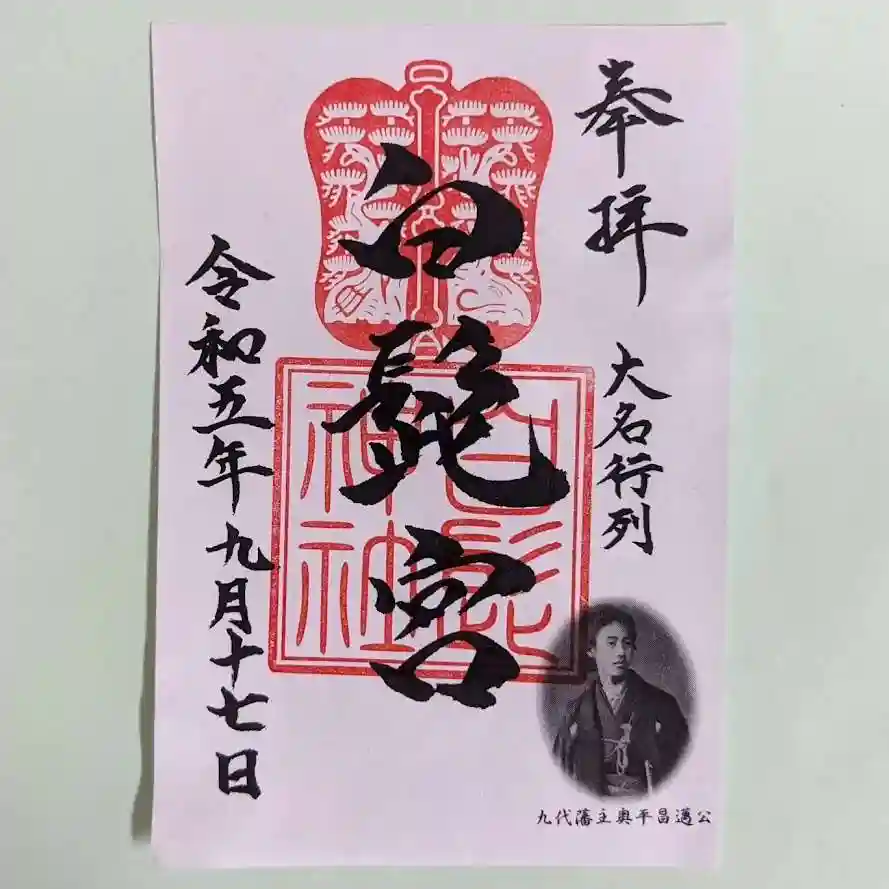 奉拝
大名行列
白髭宮
白髭
神社
令和五年九月十七日
九代藩主奥平昌邁公